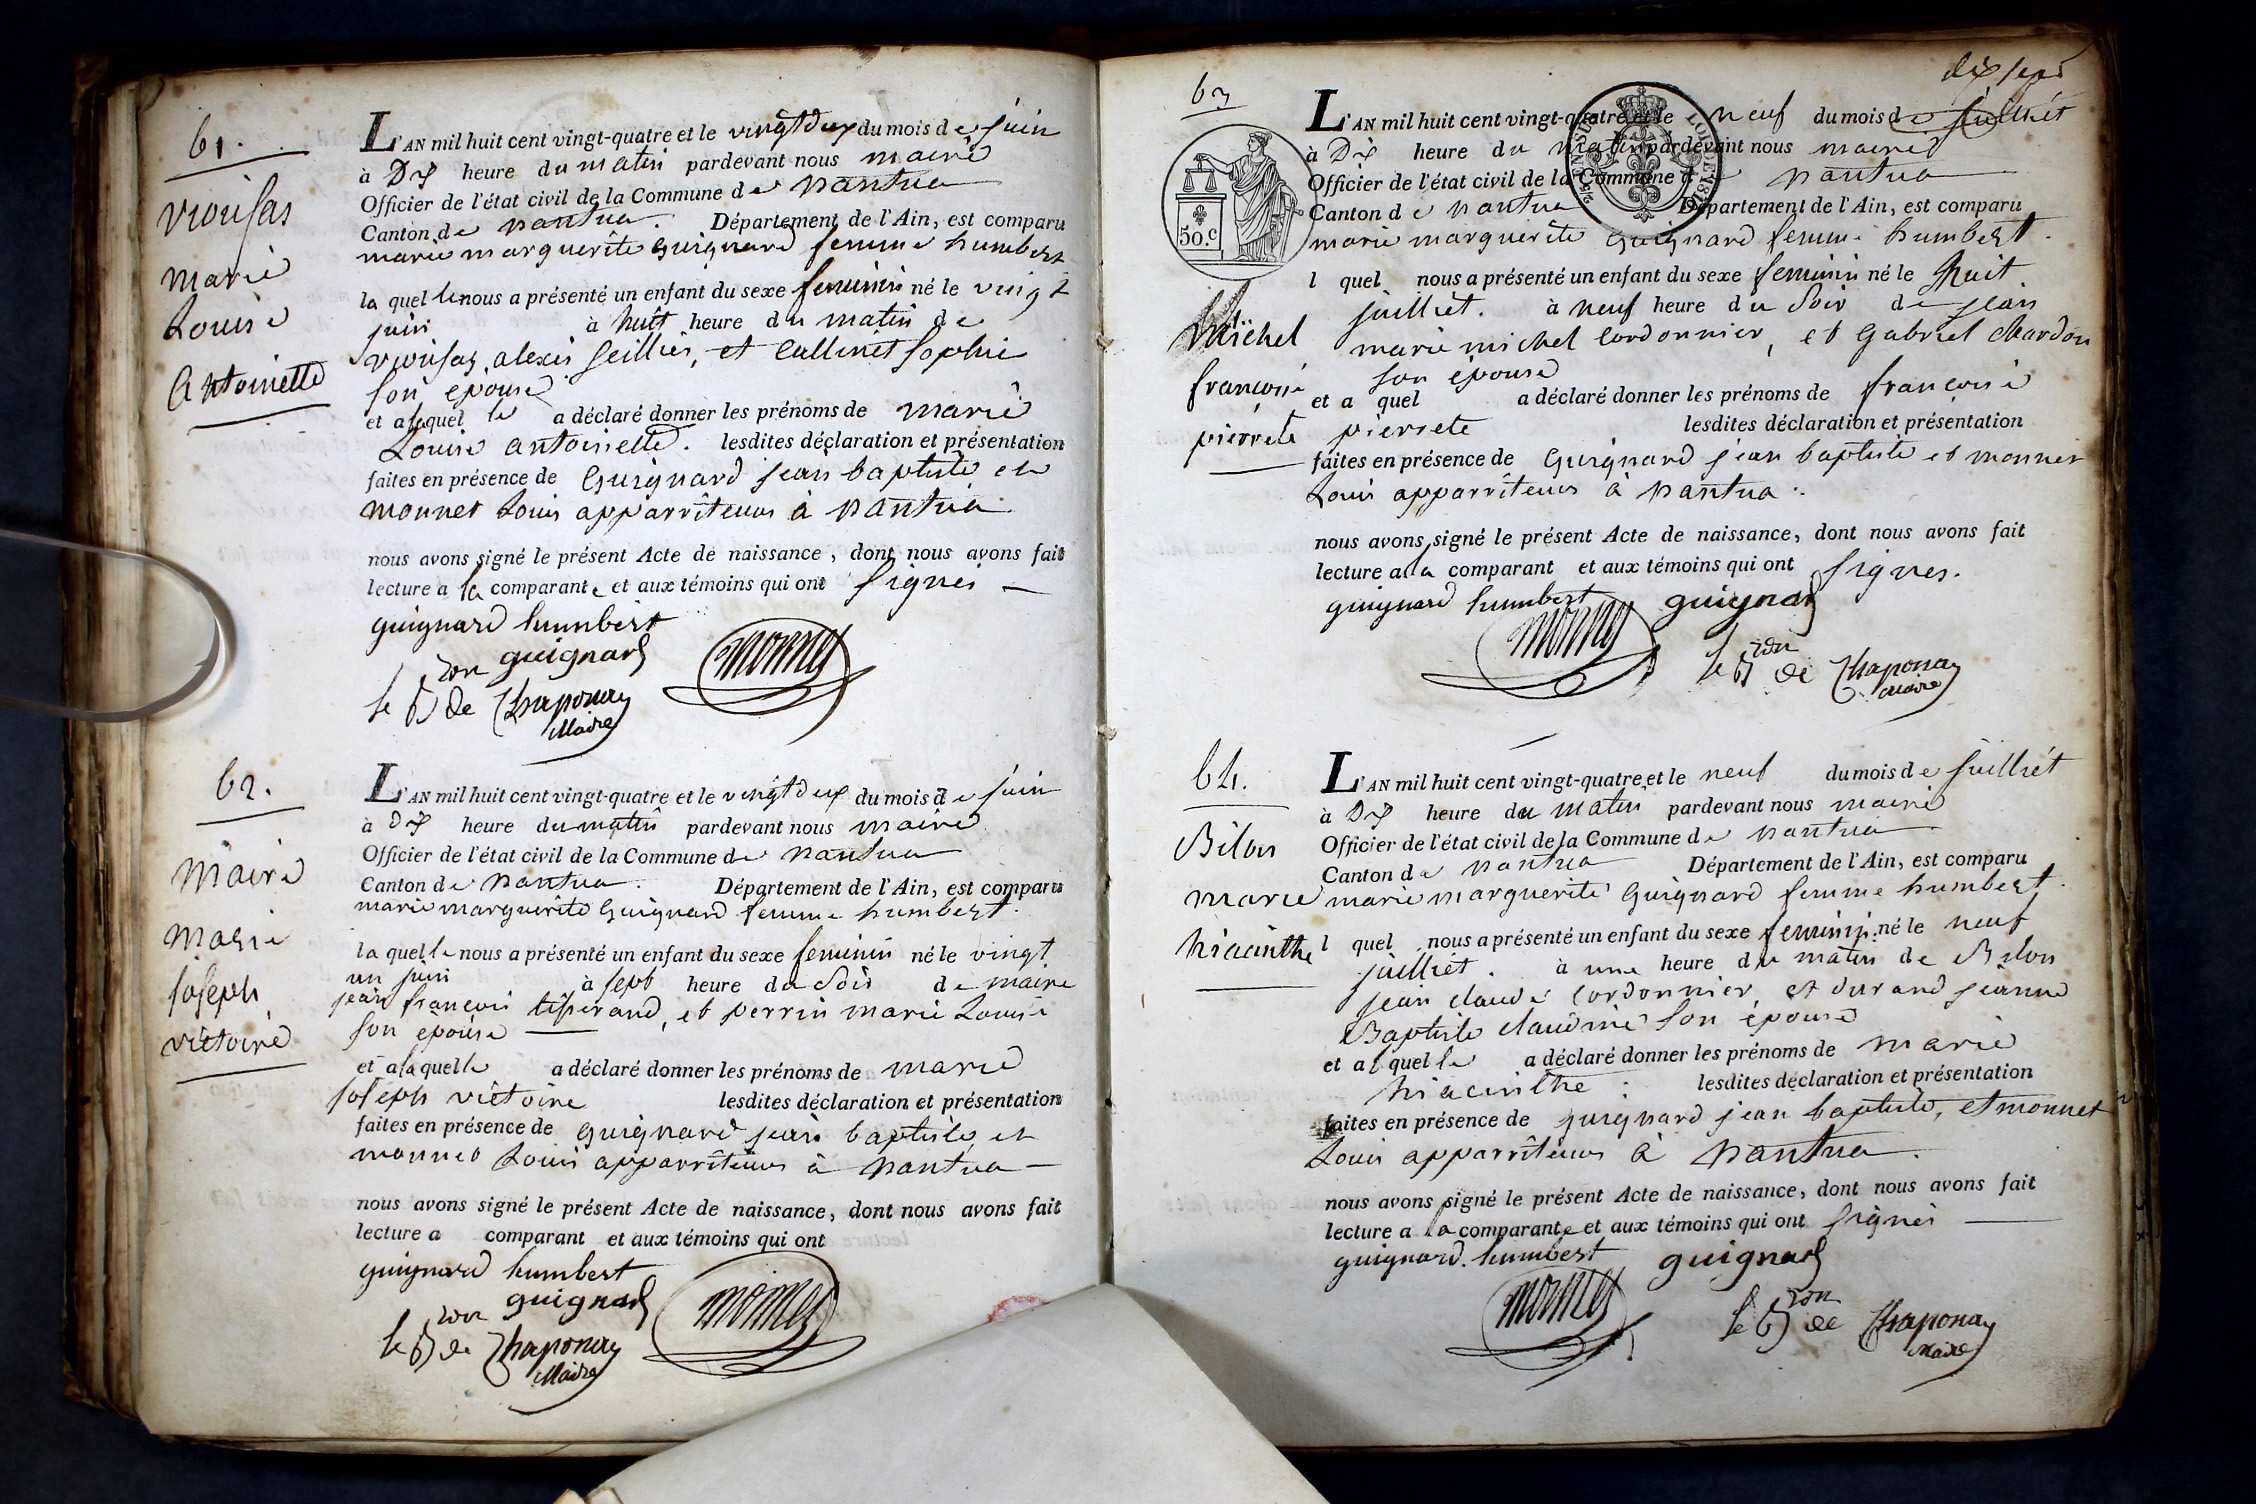 61.
Viousas
marie
Louise
Antoinette
L'AN mil huit cent vingt-quatre et le vingt deux du mois de juin
à Dix heure du matin pardevant nous maire
Officier de l'état civil de la Commune de nantua
Canton de nantua. Département de l'Ain, est comparu
marie marguerite Guignard femme humbert
la quelle nous a présenté un enfant du sexe feminin né le vingt
juin à huit heure du matin de
viousas, alexis et Callinet Sophie
son epouse
et a laquelle a déclaré donner les prénoms de marie
Louise antoinette. lesdites déclaration et présentation
faites en présence de Guignard jean baptiste et
monnet Louis apparriteurs à nantua
nous avons signé le présent Acte de naissance, dont nous avons fait
lecture a la comparante et aux témoins qui ont signés
guignard humbert
guignard
monnet
le Bon de Chaponay
Maire
62.
Maire
marie
joseph
victoire
L'AN mil huit cent vingt-quatre et le vingt deux du mois de juin
à dix heure du matin pardevant nous maire
Officier de l'état civil de la Commune de nantua
Canton de nantua. Département de l'Ain, est comparu
marie marguerite Guignard femme humbert.
la quelle nous a présenté un enfant du sexe feminin né le vingt
un juin à sept heure du soir de maire
jean françois tisserand, et perrin marie Louise
son epouse
et a laquelle a déclaré donner les prénoms de marie
joseph victoire lesdites déclaration et présentation
faites en présence de guignard jean baptiste et
monnet Louis apparriteurs à nantua
nous avons signé le présent Acte de naissance, dont nous avons fait
lecture a comparant et aux témoins qui ont
guignard humbert
guignard
monnet
le Bon de Chaponay
Maire
dix sept
63
50.c
Michel
françoise
pierrete
L'AN mil huit cent vingt-quatre et le neuf du mois de juilliet
à Dix heure du matin pardevant nous maire
Officier de l'état civil de la Commune de nantua
Canton de nantua Département de l'Ain, est comparu
marie marguerite guignard femme humbert.
l quel nous a présenté un enfant du sexe feminin né le huit
juilliet. à neuf heure du soir de jean
marie michel cordonnier, et gabriel chardon
son épouse
et a quel a déclaré donner les prénoms de françoise
pierrete lesdites déclaration et présentation
faites en présence de Guignard jean baptiste et monnet
Louis apparriteurs à nantua.
nous avons signé le présent Acte de naissance, dont nous avons fait
lecture a la comparant et aux témoins qui ont signes.
guignard humbert guignard
monnet
le Bon de Chaponay
Maire
64.
Bilon
marie
hiacinthe
L'AN mil huit cent vingt-quatre et le neuf du mois de juilliet
à Dix heure du matin pardevant nous maire
Officier de l'état civil de la Commune de nantua
Canton de nantua Département de l'Ain, est comparu
marie marguerite Guignard femme humbert.
l quel nous a présenté un enfant du sexe feminin né le neuf
juilliet. à une heure du matin de Bilon
jean claude cordonnier, et durand jeanne
Baptiste claudine son épouse
et a l quelle a déclaré donner les prénoms de marie
hiacinthe. lesdites déclaration et présentation
faites en présence de guignard jean baptiste, et monnet
Louis apparriteurs à nantua.
nous avons signé le présent Acte de naissance, dont nous avons fait
lecture a la comparante et aux témoins qui ont signés
guignard humbert guignard
monnet
le Bon de Chaponay
Maire